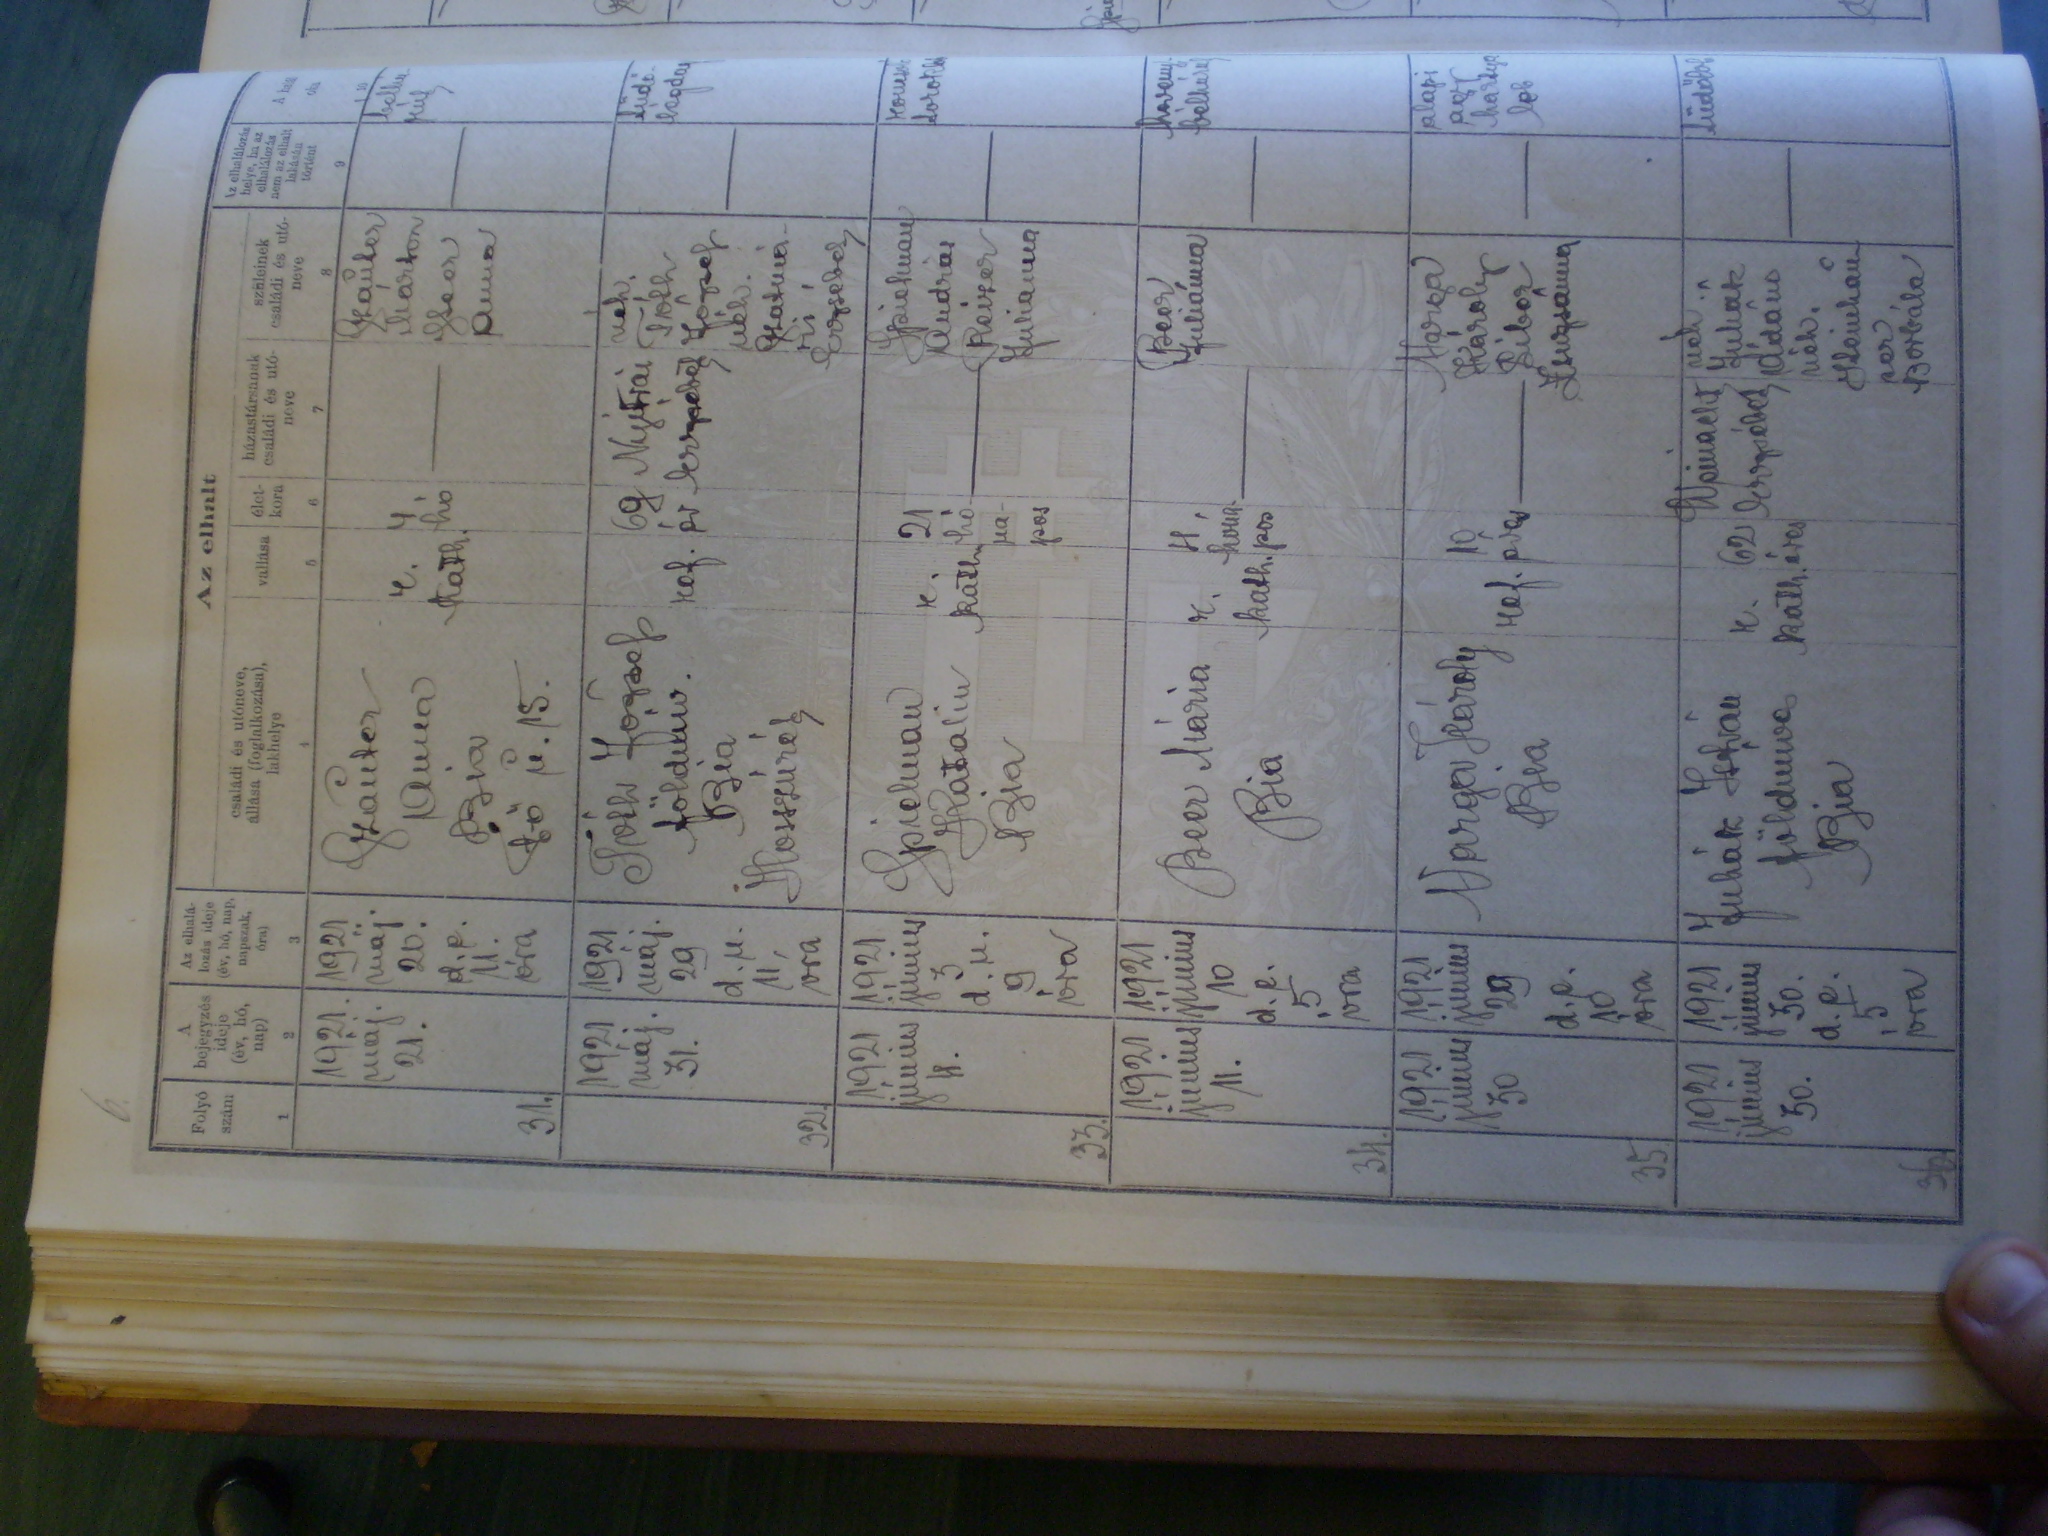 6.
Az elhalt
Folyó
szám
A
bejegyzés
ideje
(év, hó,
nap)
Az elhalá-
lozás ideje
(év, hó, nap,
napszak,
óra)
családi és utóneve,
állása (foglalkozása),
lakhelye
vallása
élet-
kora
házastársának
családi és utó-
neve
szüleinek
családi és utó-
neve
Az elhalálozás
helye, ha az
elhalálozás
nem az elhalt
lakásán
történt
A hal
oka
1
2
3
4
5
6
7
8
9
31.
1921.
máj.
21.
1921
máj.
20.
d. e.
11.
óra
Anna
Bia
Fő u. 15.
r.
kath.
4
hó
Márton
Anna
32.
1921
máj.
31.
1921
máj.
29
d. u.
11,
óra
Tóth József
földmív.
Bia
Hosszúrét
ref.
69
évi
Nyitrai
Erzsébet
néh.
Tóth
József
néh.
Erzsébet
tüdő-
33.
1921
június
4.
1921
június
3
d. u.
9
óra
Spielman
Katalin
Bia
r.
kath.
21
hó
na-
pos
Spielman
András
Reizer
Julianna
34.
1921
június
11.
1921
június
10
d. e.
5
óra
Beer Mária
Bia
r.
kath.
4,
hóna-
pos
Beer
Juliánna
35.
1921
június
30
1921
június
29
d. e.
10
óra
Varga Károly
Bia
ref.
10
éves
Varga
Károly
Bibor
Zsuzsánna
agy
36.
1921
június
30.
1921
június
30.
d. e.
5
óra
Juhák István
földmíves
Bia
r.
kath.
62
éves
Erzsébet
néh.
Juhák
Ádám
néh.
Borbála
tüdőlob